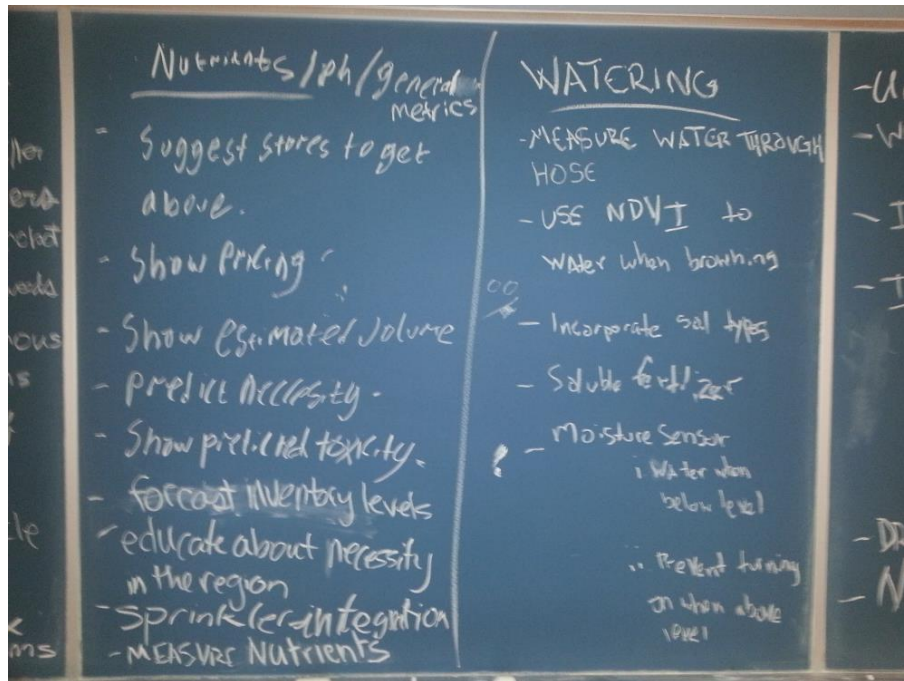 Nutrients/ph/general
metrics
- Suggest stores to get
above.
- Show Pricing
- Show estimated volume
- predict necessity.
- Show predicted toxicity.
- forcast inventory levels
- educate about necessity
in the region
- Sprinkler integration
- MEASURE NutrieNts
WATERING
- MEASURE WATER THROUGH
HOSE
- USE NDVI to
water when browning
- Incorporate soil types
- Soluble fertilizer
! - Moisture Sensor
i water when
below level
ii Prevent turning
on when above
level